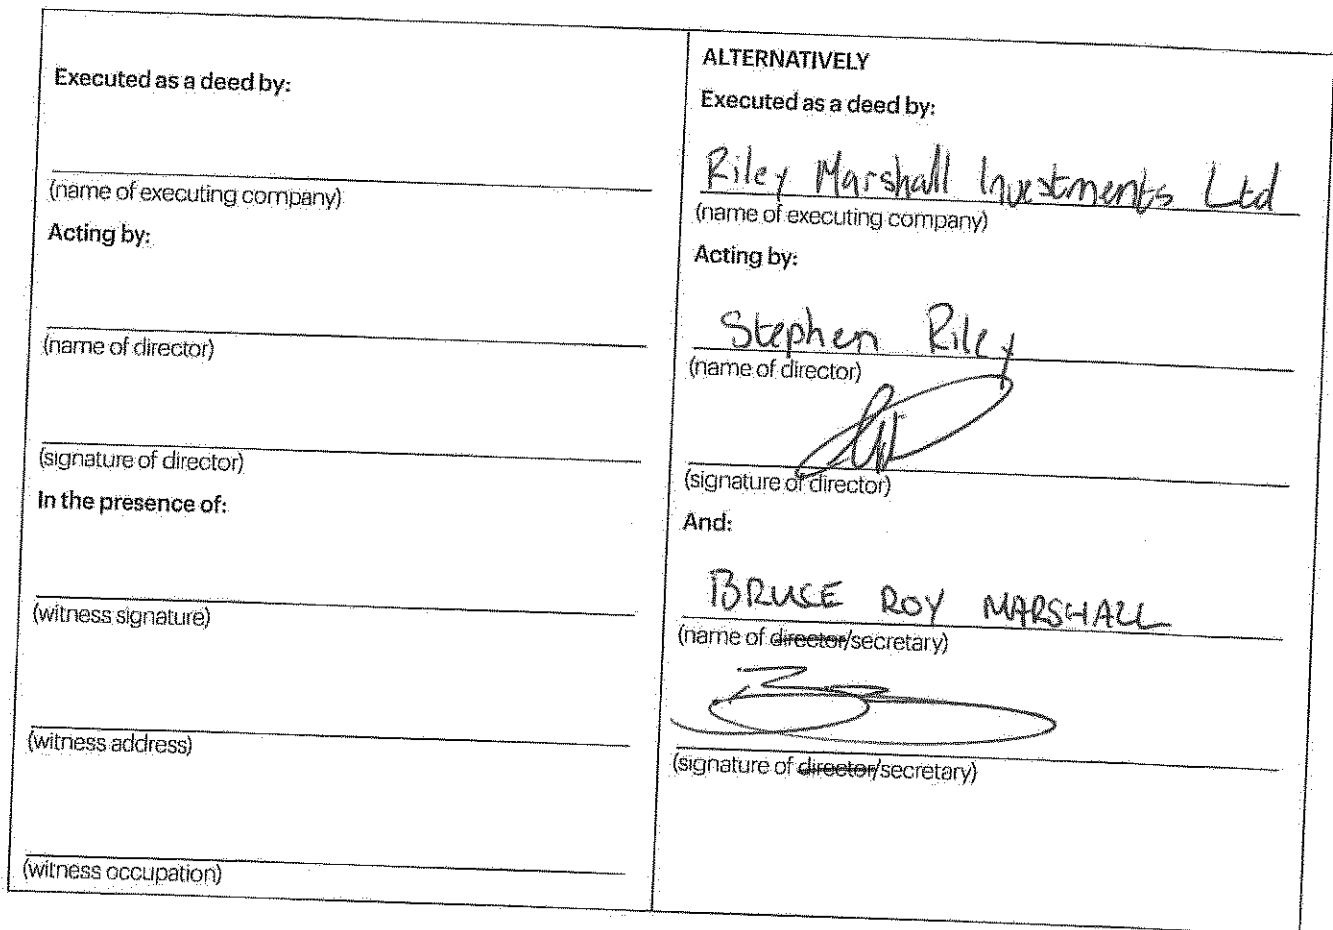 Executed as a deed by:
(name of executing company)
Acting by:
(name of director)
(signature of director)
In the presence of:
(witness signature)
(witness address)
(witness occupation)
ALTERNATIVELY
Executed as a deed by:
Riley Marshall Investments Ltd
(name of executing company)
Acting by:
Stephen Riley
(name of director)
(signature of director)
And:
BRUCE ROY MARSHALL
(name of director/secretary)
(signature of director/secretary)